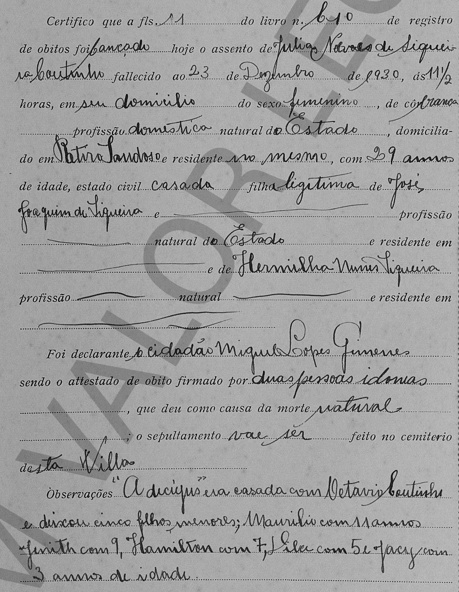 Certifico que a fls. 11 do livro n. 6 10 de registro
de obitos foi lançado hoje o assento de Julia Novaes de Siquei-
ra Coutinho fallecido ao 23 de Dezembro de 1930, ás 11 1/2
horas, em seu domicilio do sexo femenino, de côr branca
profissão domestica natural do Estado, domicilia-
do em Santos e residente no mesmo, com 29 annos
de idade, estado civil casada filha legitima de José
Joaquim de Siqueira e profissão
natural do Estado e residente em
e de Hermilha Nunes Siqueira
profissão natural e residente em
Foi declarante o cidadão Miguel Lopes Gimenes
sendo o attestado de obito firmado por duas pessoas idoneas
, que deu como causa da morte natural
; o sepultamento vae ser feito no cemiterio
desta Villa
Observações "A decujus" era casada com Octavio Coutinho
e deixou cinco filhos menores; Maurilio com 11 annos
Zenith com 9, Hamilton com 7, com 5 e Jacy com
3 annos de idade.
VALOR LEG